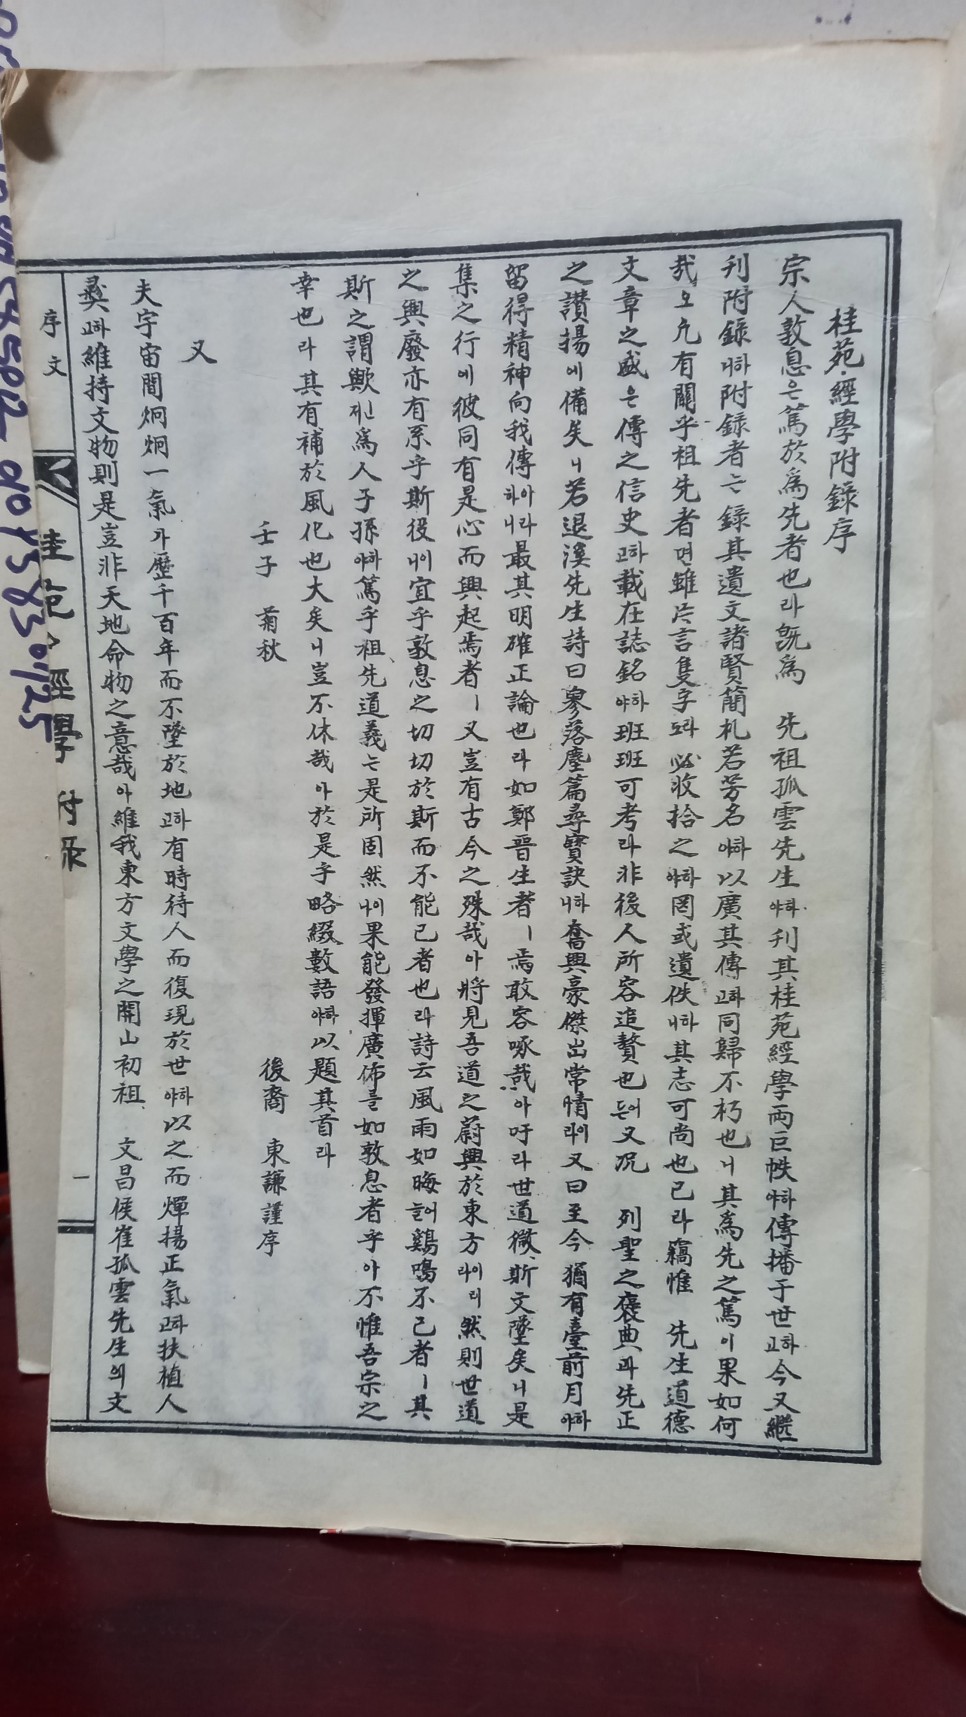 桂苑·經學附錄序
宗人敦息은篤於爲先者也라旣爲 先祖孤雲先生야하刊其桂苑經學兩巨帙야하傳播于世고하今又繼
刊附錄니하附錄者는錄其遺文諸賢簡札若芳名야하以廣其傳고하同歸不朽也ㅣ니其爲先之篤이果如何
哉오凡有關乎祖先者면雖片言隻字도라必收拾之야하罔或遺佚니하其志可尚也已라竊惟 先生道德
文章之盛은傳之信史고하載在誌銘야하班班可考라非後人所容追贅也든어又況 列聖之褒典과先正
之讚揚에備矣ㅣ니若退溪先生詩曰寥落塵篇尋寶訣니하奮興豪傑出常情라이又曰至今猶有臺前月야하
留得精神向我傳하아니라最其明確正論也라如鄭晋生者ㅣ焉敢容啄哉아吁라世道微、斯文墜矣ㅣ니是
集之行에彼同有是心而興起焉者ㅣ又豈有古今之殊哉아將見吾道之蔚興於東方라이리然則世道
之興廢亦有系乎斯役니宜乎敦息之切切於斯而不能已者也라詩云風雨如晦늘어鷄鳴不已者ㅣ其
斯之謂歟ㄴ져爲人子孫야하篤乎祖先道義는是所固然나이果能發揮廣佈를如敦息者乎아不惟吾宗之
幸也라其有補於風化也大矣ㅣ니豈不休哉아於是乎略綴數語야하以題其首라
壬子 菊秋 後裔 東謙謹序
又
夫宇宙間炯炯一氣가歷千百年而不墜於地고하有時待人而復現於世야하以之而煇揚正氣고하扶植人
彛고하維持文物則是豈非天地命物之意哉아維我東方文學之開山初祖 文昌侯崔孤雲先生의文
序文
桂苑·經學 附錄
一